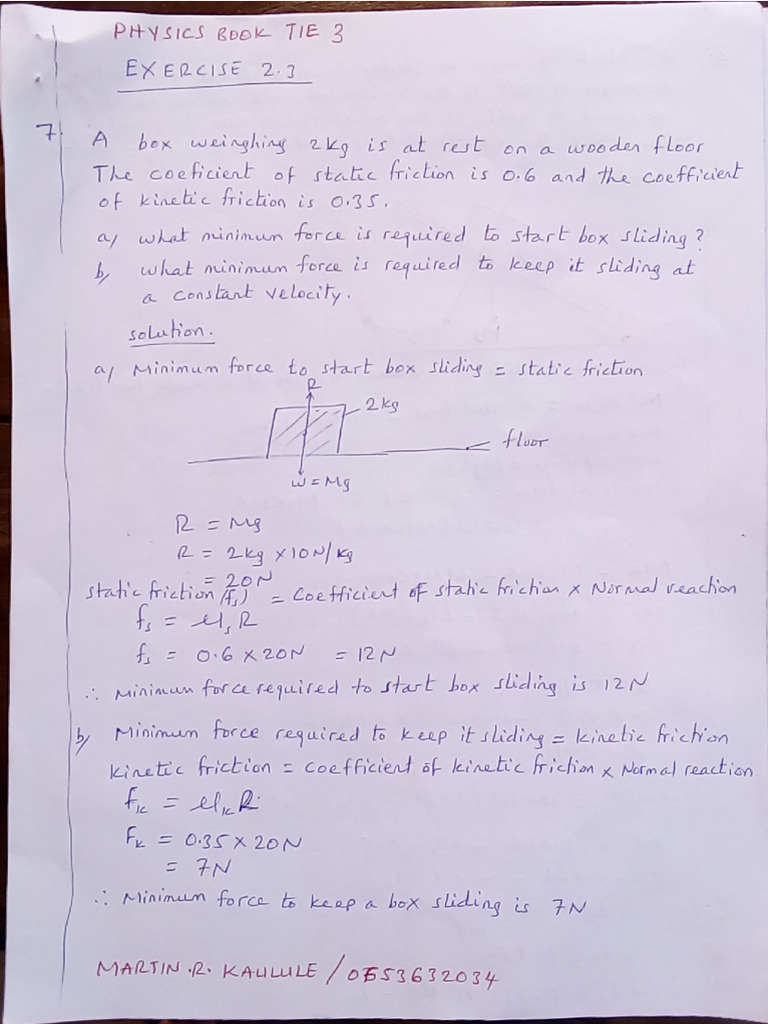 PHYSICS BOOK TIE 3
EXERCISE 2.3
7. A box weinghing 2kg is at rest on a wooden floor
The coeficient of static friction is 0.6 and the coefficient
of kinetic friction is 0.35.
a) what minimum force is required to start box sliding?
b) what minimum force is required to keep it sliding at
a constant velocity.
solution.
a) Minimum force to start box sliding = static friction
R
2kg
floor
W = Mg
R = Mg
R = 2kg × 10N/kg
= 20N
static friction (fs) = Coefficient of static friction × Normal reaction
fs = μsR
fs = 0.6 × 20N = 12N
∴ Minimum force required to start box sliding is 12N
b) Minimum force required to keep it sliding = kinetic friction
kinetic friction = Coefficient of kinetic friction × Normal reaction
fk = μkR
Fk = 0.35 × 20N
= 7N
∴ Minimum force to keep a box sliding is 7N
MARTIN .R. KAULULE /